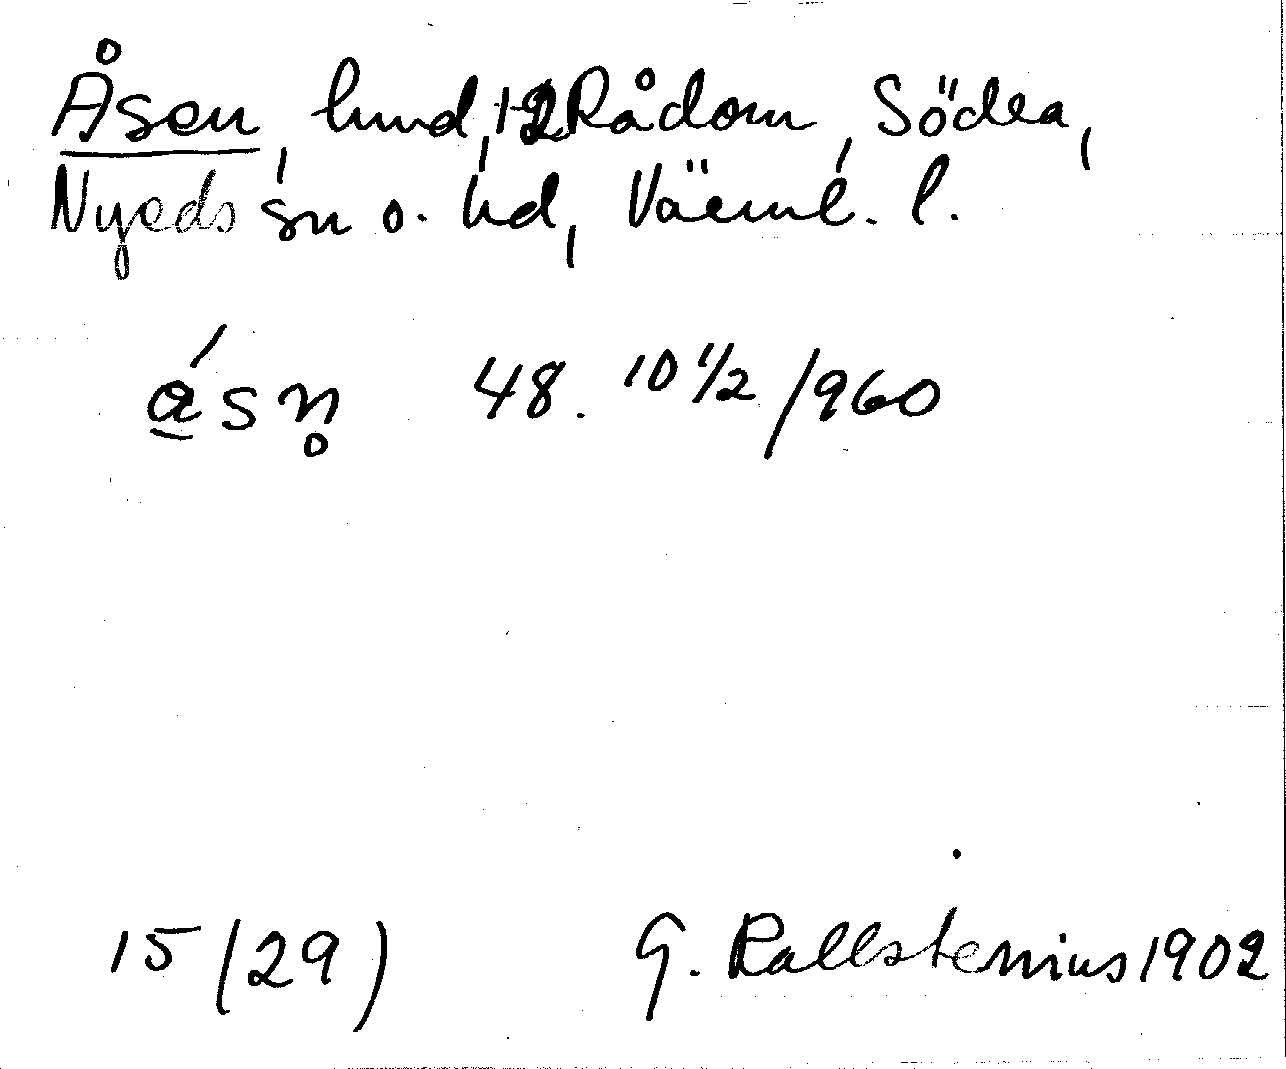 Åsen, hmd, 1-2 Rådom, Södra,
Nyeds sn o. hd, Värml. l.
ásn̥ 48. 10 1/2 /960
15 (29) G. Kallstenius 1902